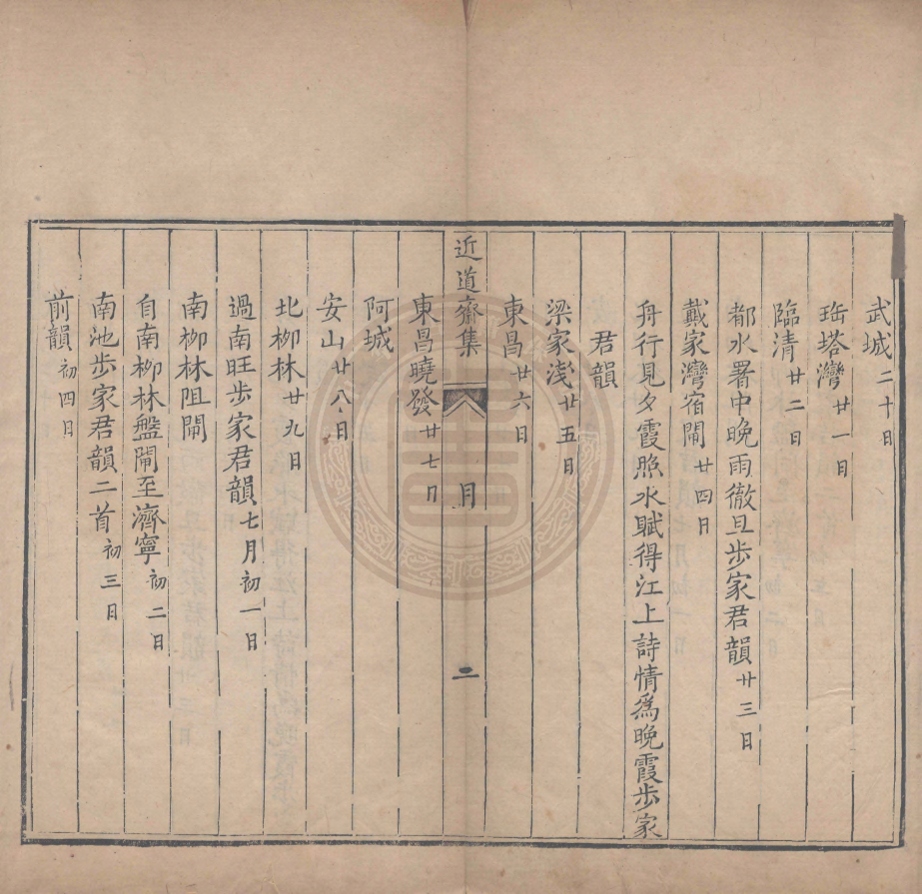 武城二十日
珤塔灣廿一日
臨清廿二日
都水署中晚雨徹旦步家君韻廿三日
戴家灣宿閘廿四日
舟行見夕霞照水賦得江上詩情爲晚霞步家
君韻
梁家淺廿五日
東昌廿六日
近道齋集 目 二
東昌曉發廿七日
阿城
安山廿八日
北柳林廿九日
過南旺步家君韻七月初一日
南柳林阻閘
自南柳林盤閘至濟寧初二日
南池步家君韻二首初三日
前韻初四日